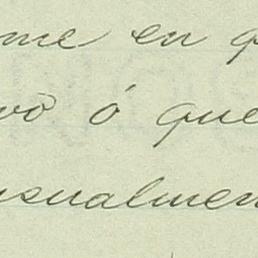 me en q
vo ó que
sualmen